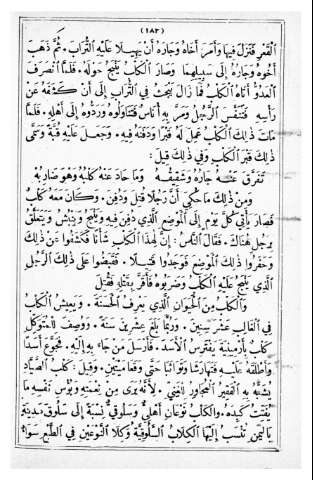 (١٨٣)
القَعْرِ فَنَزَلَ فِيهَا وَأَمَرَ أَخَاهُ وَجَارَهُ أَنْ يَهِيلَا عَلَيْهِ التُّرَابَ. ثُمَّ ذَهَبَ
أَخُوهُ وَجَارُهُ إِلَى سَبِيلِهِمَا وَصَارَ الْكَلْبُ يَنْبَحُ حَوْلَهُ. فَلَمَّا انْصَرَفَ
الْعَدُوُّ أَتَاهُ الْكَلْبُ فَمَا زَالَ يَبْحَثُ فِي التُّرَابِ إِلَى أَنْ كَشَفَهُ عَنْ
رَأْسِهِ فَتَنَفَّسَ الرَّجُلُ وَمَرَّ بِهِ أُنَاسٌ فَتَنَاوَلُوهُ وَرَدُّوهُ إِلَى أَهْلِهِ. فَلَمَّا
مَاتَ ذٰلِكَ الْكَلْبُ عَمِلَ لَهُ قَبْرًا وَدَفَنَهُ فِيهِ. وَجَعَلَ عَلَيْهِ قُبَّةً وَسَمَّى
ذٰلِكَ قَبْرَ الْكَلْبِ وَفِي ذٰلِكَ قِيلَ:
تَفَرَّقَ عَنْهُ جَارُهُ وَشَقِيقُهُ وَمَا حَادَ عَنْهُ كَلْبُهُ وَهْوَ ضَارِبُهْ
وَمِنْ ذٰلِكَ مَا حُكِيَ أَنَّ رَجُلًا قُتِلَ وَدُفِنَ. وَكَانَ مَعَهُ كَلْبٌ
فَصَارَ يَأْتِي كُلَّ يَوْمٍ إِلَى الْمَوْضِعِ الَّذِي دُفِنَ فِيهِ وَيَنْبَحُ وَيَنْبُشُ وَيَتَعَلَّقُ
بِرَجُلٍ هُنَاكَ. فَقَالَ النَّاسُ: إِنَّ لِهٰذَا الْكَلْبِ شَأْنًا فَكَشَفُوا عَنْ ذٰلِكَ
وَحَفَرُوا ذٰلِكَ الْمَوْضِعَ فَوَجَدُوا قَتِيلًا. فَقَبَضُوا عَلَى ذٰلِكَ الرَّجُلِ
الَّذِي يَنْبَحُ عَلَيْهِ الْكَلْبُ وَضَرَبُوهُ فَأَقَرَّ بِقَتْلِهِ فَقُتِلَ
وَالْكَلْبُ مِنَ الْحَيَوَانِ الَّذِي يَعْرِفُ الْحَسَنَةَ. وَيَعِيشُ الْكَلْبُ
فِي الْغَالِبِ عَشْرَ سِنِينَ. وَرُبَّمَا بَلَغَ عِشْرِينَ سَنَةً. وَوُصِفَ لِلْمُتَوَكِّلِ
كَلْبٌ بِأَرْمِينِيَةَ يَفْتَرِسُ الْأَسَدَ. فَأَرْسَلَ مَنْ جَاءَ بِهِ إِلَيْهِ. فَجَوَّعَ أَسَدًا
وَأَطْلَقَهُ عَلَيْهِ فَتَهَارَشَا وَتَوَاثَبَا حَتَّى وَقَعَا مَيِّتَيْنِ. وَقِيلَ: كَلْبُ الصَّيَّادِ
يُشَبَّهُ بِهِ الْفَقِيرُ الْمُجَاوِرُ لِلْغَنِيِّ. لِأَنَّهُ يَرَى مِنْ نِعْمَتِهِ وَبُؤْسِ نَفْسِهِ مَا
يُفَتِّتُ كَبِدَهُ. وَالْكَلْبُ نَوْعَانِ أَهْلِيٌّ وَسَلُوقِيٌّ نِسْبَةً إِلَى سَلُوقَ مَدِينَةٍ
بِالْيَمَنِ تُنْسَبُ إِلَيْهَا الْكِلَابُ السَّلُوقِيَّةُ وَكِلَا النَّوْعَيْنِ فِي الطَّبْعِ سَوَاءٌ